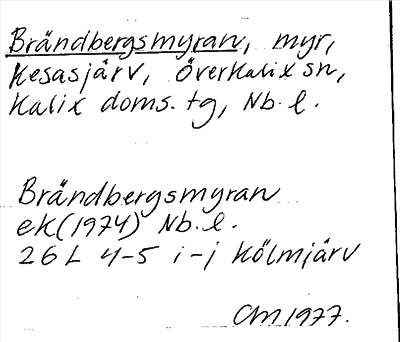 Brändbergsmyran, myr,
Kesasjärv, Överkalix sn,
Kalix doms. tg, Nb. l.
Brändbergsmyran
ek (1974) Nb. l.
26 L 4-5 i-j Kölmjärv
CM 1977.